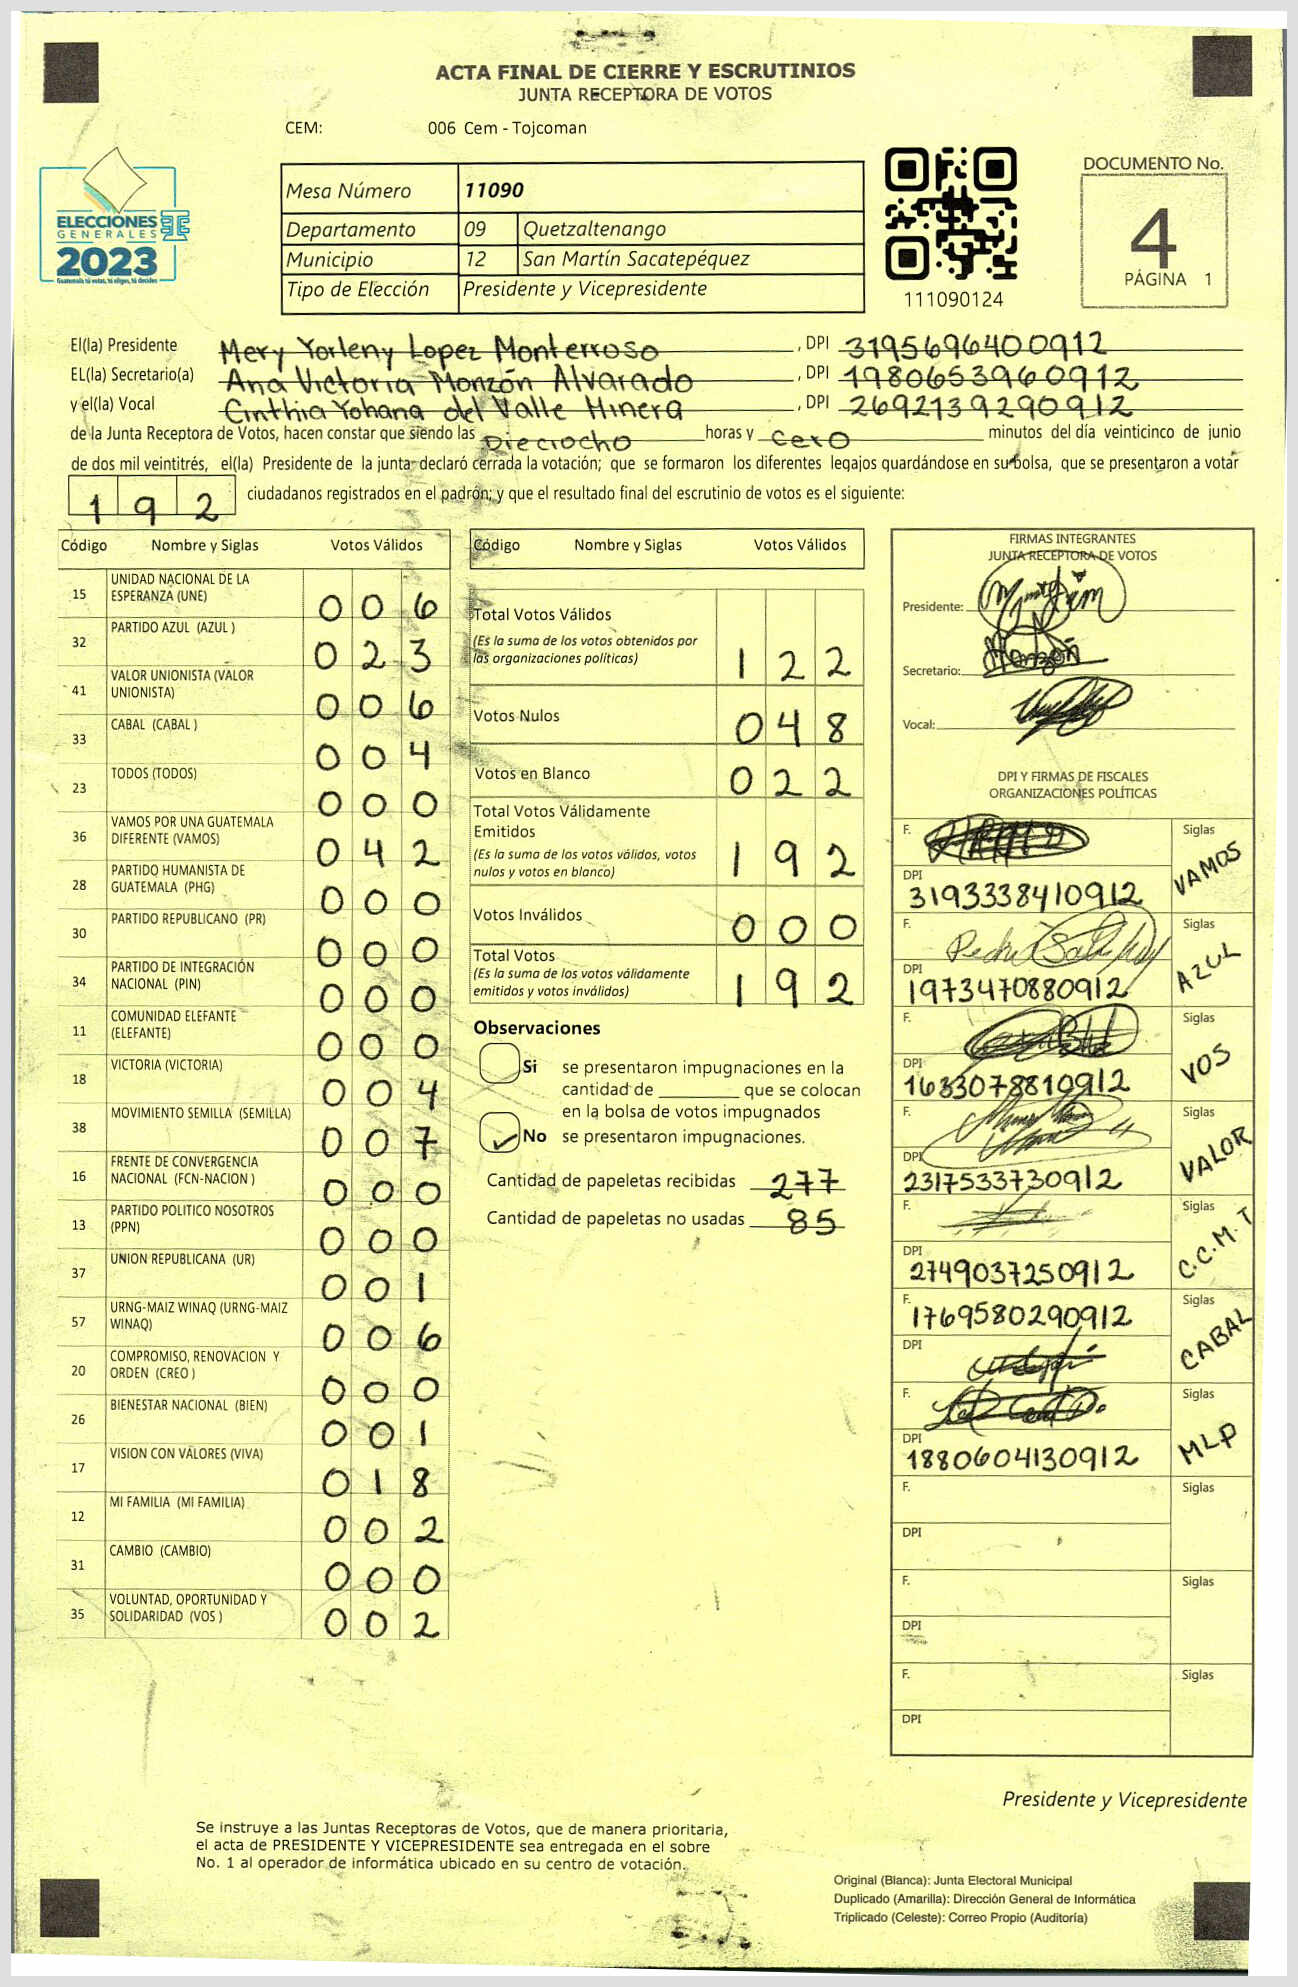 ACTA FINAL DE CIERRE Y ESCRUTINIOS
JUNTA RECEPTORA DE VOTOS
CEM: 006 Cem - Tojcoman
ELECCIONES
GENERALES
2023
Guatemala tú votas, tú eliges, tú decides
Mesa Número 11090
Departamento 09 Quetzaltenango
Municipio 12 San Martín Sacatepéquez
Tipo de Elección Presidente y Vicepresidente
111090124
DOCUMENTO No.
4
PÁGINA 1
El(la) Presidente Mery Yorleny Lopez Monterroso, DPI 3195696400912
EL(la) Secretario(a) Ana Victoria Monzón Alvarado, DPI 1980653960912
y el(la) Vocal Cinthia Yohana del Valle Minera, DPI 2692139290912
de la Junta Receptora de Votos, hacen constar que siendo las Dieciocho horas y Cero minutos del día veinticinco de junio
de dos mil veintitrés, el(la) Presidente de la junta declaró cerrada la votación; que se formaron los diferentes legajos guardándose en su bolsa, que se presentaron a votar
192 ciudadanos registrados en el padrón; y que el resultado final del escrutinio de votos es el siguiente:
Código Nombre y Siglas Votos Válidos
15 UNIDAD NACIONAL DE LA ESPERANZA (UNE) 006
32 PARTIDO AZUL (AZUL ) 023
41 VALOR UNIONISTA (VALOR UNIONISTA) 006
33 CABAL (CABAL ) 004
23 TODOS (TODOS) 000
36 VAMOS POR UNA GUATEMALA DIFERENTE (VAMOS) 042
28 PARTIDO HUMANISTA DE GUATEMALA (PHG) 000
30 PARTIDO REPUBLICANO (PR) 000
34 PARTIDO DE INTEGRACIÓN NACIONAL (PIN) 000
11 COMUNIDAD ELEFANTE (ELEFANTE) 000
18 VICTORIA (VICTORIA) 004
38 MOVIMIENTO SEMILLA (SEMILLA) 007
16 FRENTE DE CONVERGENCIA NACIONAL (FCN-NACION ) 000
13 PARTIDO POLITICO NOSOTROS (PPN) 000
37 UNION REPUBLICANA (UR) 001
57 URNG-MAIZ WINAQ (URNG-MAIZ WINAQ) 006
20 COMPROMISO, RENOVACION Y ORDEN (CREO ) 000
26 BIENESTAR NACIONAL (BIEN) 001
17 VISION CON VALORES (VIVA) 018
12 MI FAMILIA (MI FAMILIA) 002
31 CAMBIO (CAMBIO) 000
35 VOLUNTAD, OPORTUNIDAD Y SOLIDARIDAD (VOS ) 002
Código Nombre y Siglas Votos Válidos
Total Votos Válidos 122
(Es la suma de los votos obtenidos por
las organizaciones políticas)
Votos Nulos 048
Votos en Blanco 022
Total Votos Válidamente
Emitidos 192
(Es la suma de los votos válidos, votos
nulos y votos en blanco)
Votos Inválidos 000
Total Votos 192
(Es la suma de los votos válidamente
emitidos y votos inválidos)
Observaciones
Si se presentaron impugnaciones en la
cantidad de ________ que se colocan
en la bolsa de votos impugnados
✓ No se presentaron impugnaciones.
Cantidad de papeletas recibidas 277
Cantidad de papeletas no usadas 85
FIRMAS INTEGRANTES
JUNTA RECEPTORA DE VOTOS
Presidente:
Secretario: Monzón
Vocal:
DPI Y FIRMAS DE FISCALES
ORGANIZACIONES POLÍTICAS
F. Siglas VAMOS
DPI 3193338410912
F. Siglas AZUL
DPI 1973470880912
F. Siglas VOS
DPI 1633078810912
F. Siglas VALOR
DPI 2317533730912
F. Siglas C.C.M.T
DPI 2749037250912
F. 1769580290912 Siglas CABAL
DPI
F. Siglas MLP
DPI 1880604130912
F. Siglas
DPI
F. Siglas
DPI
F. Siglas
DPI
Presidente y Vicepresidente
Se instruye a las Juntas Receptoras de Votos, que de manera prioritaria,
el acta de PRESIDENTE Y VICEPRESIDENTE sea entregada en el sobre
No. 1 al operador de informática ubicado en su centro de votación.
Original (Blanca): Junta Electoral Municipal
Duplicado (Amarilla): Dirección General de Informática
Triplicado (Celeste): Correo Propio (Auditoría)